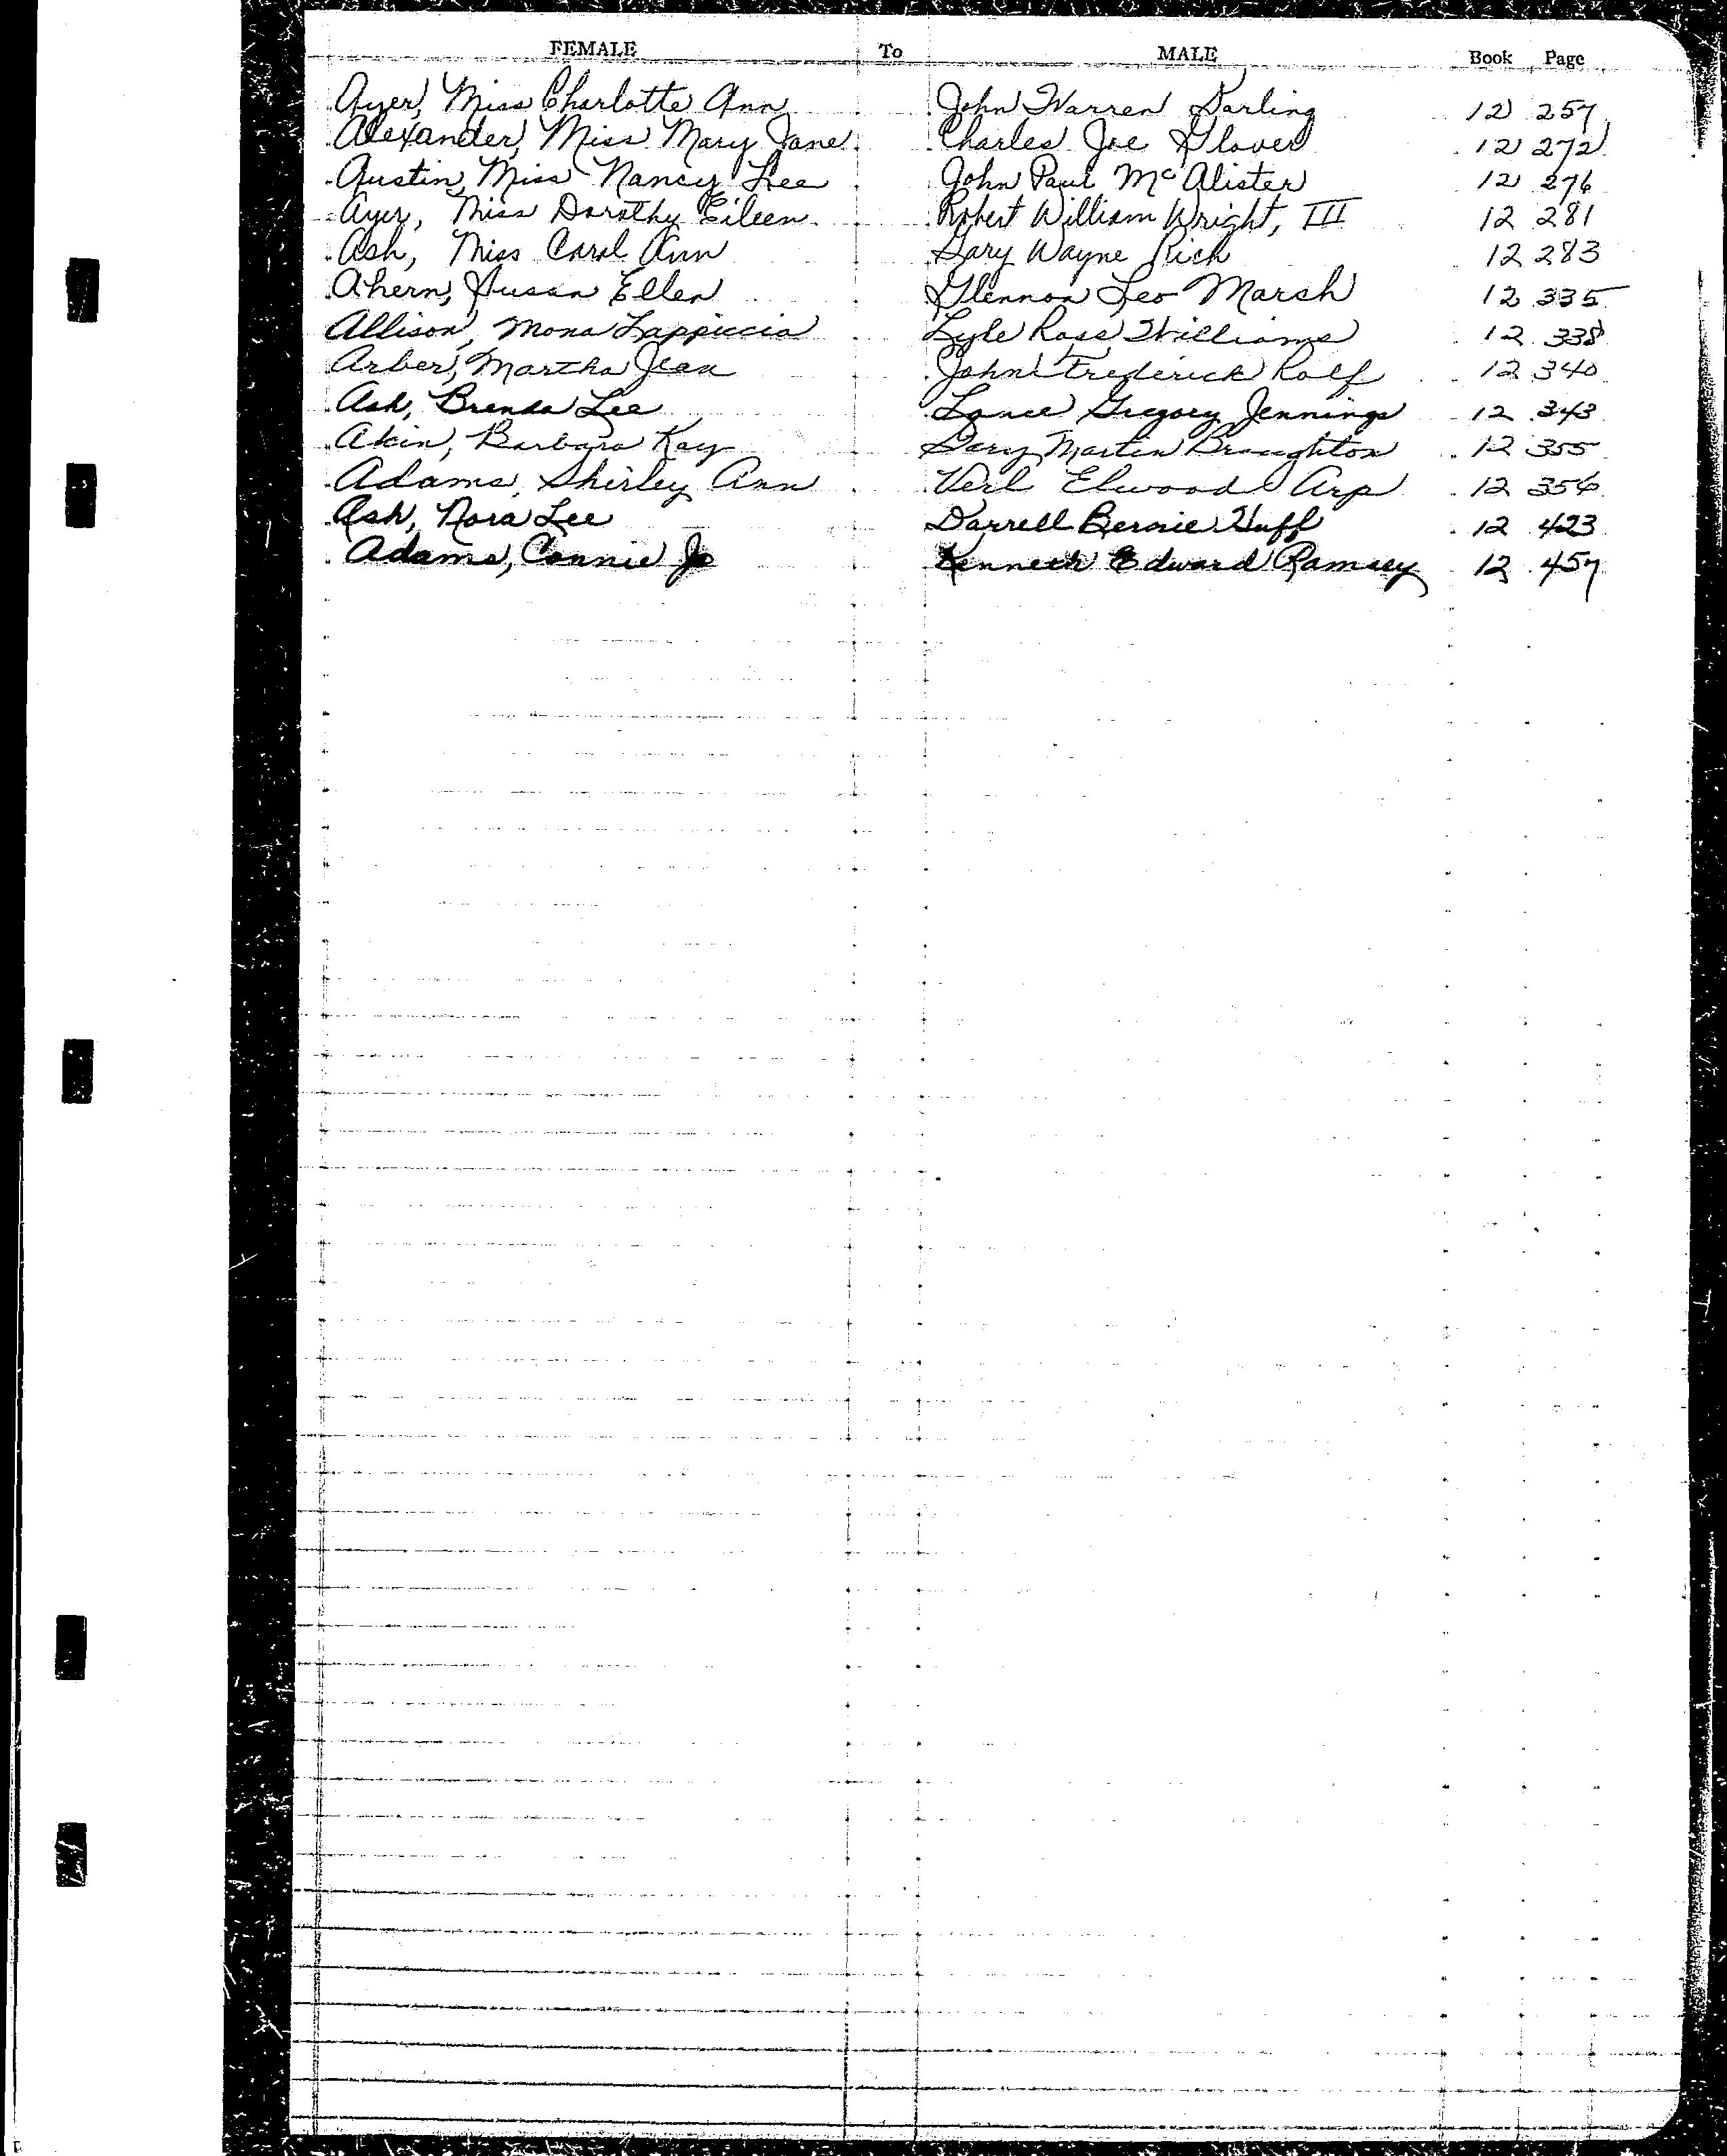 FEMALE To MALE Book Page
Ayer, Miss Charlotte Ann John Warren Darling 12 257
Alexander, Miss Mary Jane Charles Joe Glover 12 272
Austin, Miss Nancy Lee John Paul McAlister 12 276
Ayer, Miss Dorothy Eileen Robert William Wright, III 12 281
Ash, Miss Carol Ann Gary Wayne Rich 12 283
Ahern, Susan Ellen Glennon Leo Marsh 12 335
Allison, Mona Lappiccia Lyle Ross Williams 12 338
Arber, Martha Jean John Frederick Rolf 12 340
Ash, Brenda Lee Lance Gregory Jennings 12 343
Akin, Barbara Kay Gary Martin Broughton 12 355
Adams, Shirley Ann Verl Elwood Arp 12 356
Ash, Nora Lee Darrell Bernie Huff 12 423
Adams, Connie Jo Kenneth Edward Ramsey 12 457